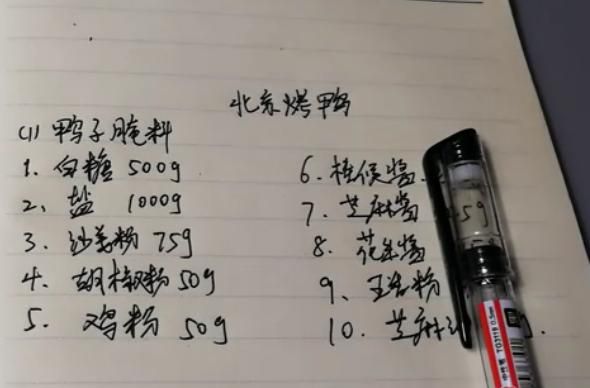 北京烤鸭
(1) 鸭子腌料
1. 白糖 500g
2、盐 1000g
3. 沙姜粉 75g
4. 胡椒粉 50g
5. 鸡粉 50g
6. 柱候酱
7. 芝麻酱 5g
8. 花生酱
9、五香粉
10. 芝麻